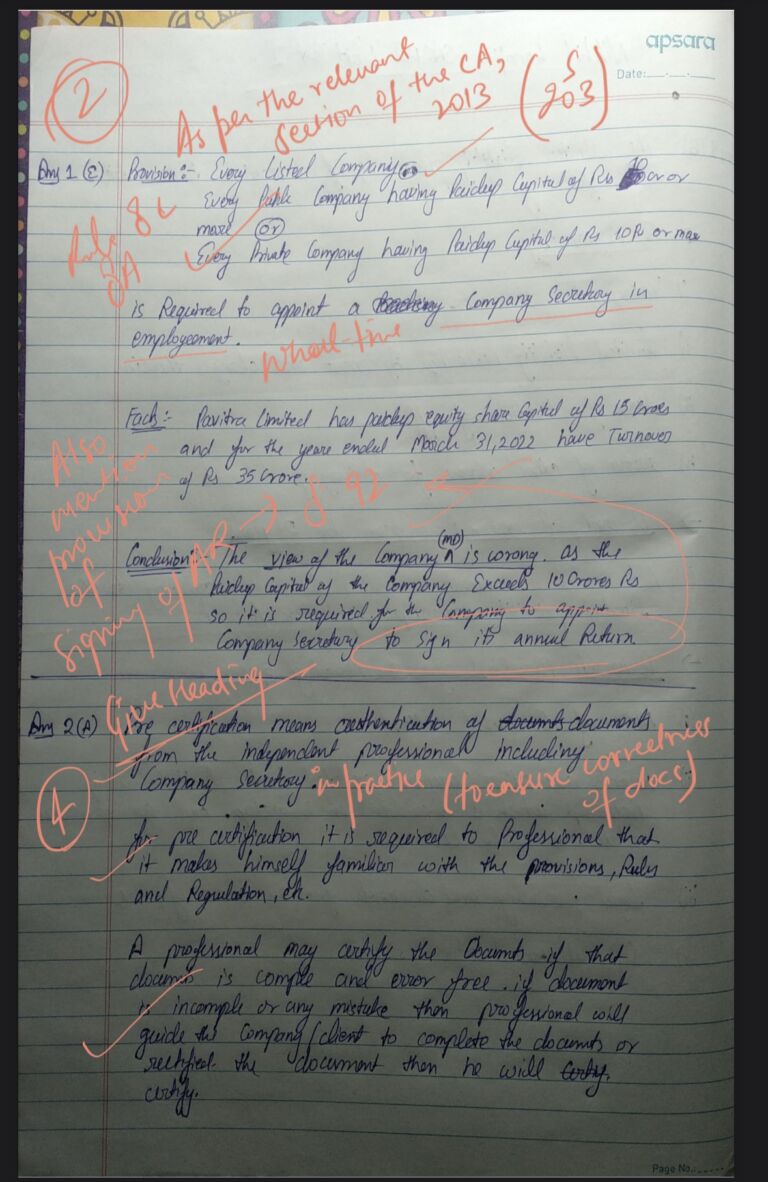 apsara
Date:
2
As per the relevant
section of the CA,
2013
(S 203)
Ans 1 (E) Provision :- Every Listed Company or
Every Public Company having Paidup Capital of Rs 10 cr or
more or
Rule 8 &
8A
Every Private Company having Paidup Capital of Rs 10 or more
is Required to appoint a Company Secretary in
employeement.
Whole-time
Facts :- Pavitra Limited has paidup equity share Capital of Rs 15 Crores
and for the year ended March 31, 2022 have Turnover
of Rs 35 Crore.
Also
mention
provision
of
signing of AR → S 92
Conclusion :- The view of the Company (MD) is wrong. as the
Paidup Capital of the Company Exceeds 10 Crores Rs
so it is required for the Company to appoint
Company Secretary to sign its annual Return
Give Heading
Ans 2(A) Pre certification means authentication of documents
from the independent professional including
Company Secretary. in practice (to ensure correctness
of docs)
4
for pre certification it is required to Professional that
it makes himself familiar with the provisions, Rules
and Regulation, etc.
A professional may certify the Documts if that
documts is comple and error free. if document
is incomple or any mistake then professional will
guide the Company/client to complete the documts or
rectified the document then he will
certify.
Page No.: